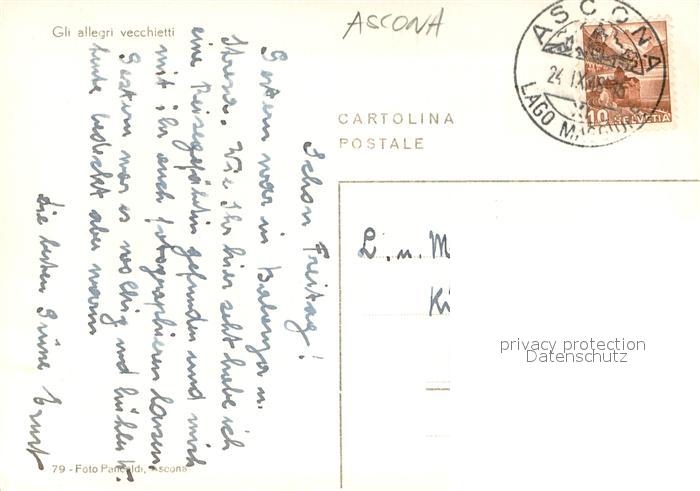 Gli allegri vecchietti
ASCONA
ASCONA
24 IX 48
LAGO MAGGIORE
10 HELVETIA
CARTOLINA
POSTALE
Schon Freitag!
Gestern war in Balerna u.
Stresa. Wie Ihr hier seht habe ich
eine Reisegefährtin gefunden und mich
mit ihr auch fotographieren lassen
Gestern war es wolkig und kühler u.
heute bedeckt aber warm
Die besten Grüsse Ernst
L. u. M
Kü
privacy protection
Datenschutz
79 - Foto Pancaldi, Ascona